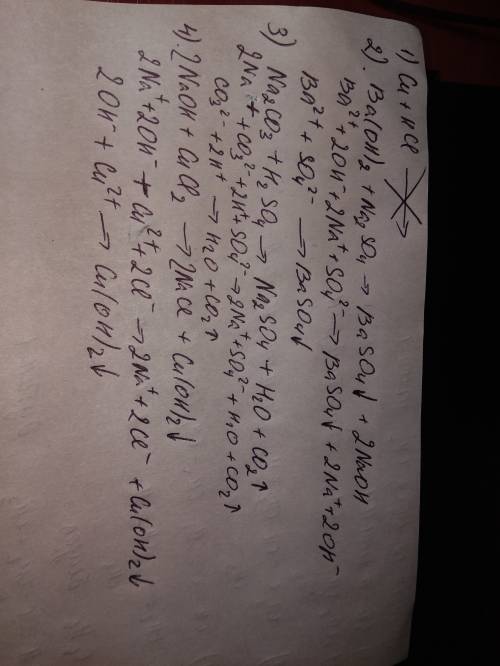 1) Cu + HCl ↛
2). Ba(OH)2 + Na2SO4 → BaSO4↓ + 2NaOH
Ba²⁺ + 2OH⁻ + 2Na⁺ + SO4²⁻ → BaSO4↓ + 2Na⁺ + 2OH⁻
Ba²⁺ + SO4²⁻ → BaSO4↓
3) Na2CO3 + H2SO4 → Na2SO4 + H2O + CO2↑
2Na⁺ + CO3²⁻ + 2H⁺ + SO4²⁻ → 2Na⁺ + SO4²⁻ + H2O + CO2↑
CO3²⁻ + 2H⁺ → H2O + CO2↑
4). 2NaOH + CuCl2 → 2NaCl + Cu(OH)2↓
2Na⁺ + 2OH⁻ + Cu²⁺ + 2Cl⁻ → 2Na⁺ + 2Cl⁻ + Cu(OH)2↓
2OH⁻ + Cu²⁺ → Cu(OH)2↓